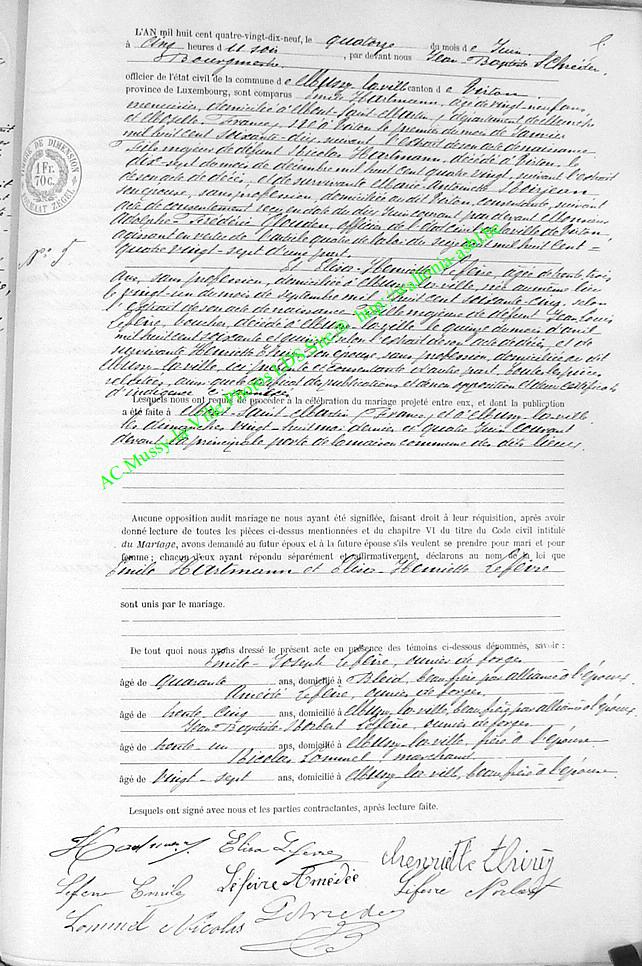 L'AN mil huit cent quatre-vingt-dix-neuf, le quatorze du mois de Juin
à cinq heures du soir, par devant nous Jean Baptiste Schréder,
Bourgmestre
officier de l'état civil de la commune de Mussy-la-ville canton de Virton,
province de Luxembourg, sont comparus Emile Hartmann, âgé de vingt-neuf ans,
menuisier, domicilié à Mont-Saint-Martin, département de Meurthe
et Moselle, France, né à Virton le premier du mois de Janvier
mil huit cent soixante-dix, suivant l'extrait de son acte de naissance
fils majeur de défunt Nicolas Hartmann, décédé à Virton, le
dix-sept du mois de décembre mil huit cent quatre vingt, suivant l'extrait
de son acte de décès, et de survivante Marie Antoinette
son épouse, sans profession, domiciliée au dit Virton, consentante, suivant
acte de consentement reçu en date du dix Juin courant par devant Monsieur
Adolphe Frédéric, officier de l'état civil de la ville de Virton,
agissant en vertu de l'article quatre de la loi du mil huit cent
quatre vingt-sept d'une part.
Et Elisa-Henriette Lefèvre, âgée de trente trois
ans, sans profession, domiciliée à Mussy-la-ville, née au même lieu
le vingt-un du mois de septembre mil huit cent soixante-cinq, selon
l'extrait de son acte de naissance, fille majeure de défunt Jean Louis
Lefèvre, boucher, décédé à Mussy-la-ville le quinze du mois d'avril
mil huit cent soixante et selon l'extrait de son acte de décès, et de
survivante Henriette son épouse, sans profession, domiciliée au dit
Mussy-la-ville, ici présente et consentante d'autre part. Toutes les pièces
relatées, ainsi que de publications et de non opposition et deux certificats
d'indigence
Lesquels nous ont requis de procéder à la célébration du mariage projeté entre eux, et dont la publication
a été faite à Mont-Saint-Martin (France) et à Mussy-la-ville
les dimanches vingt-huit mai dernier et quatre Juin courant
devant la principale porte de la maison commune des dits lieux.
Aucune opposition audit mariage ne nous ayant été signifiée, faisant droit à leur réquisition, après avoir
donné lecture de toutes les pièces ci-dessus mentionnées et du chapitre VI du titre du Code civil intitulé
du Mariage, avons demandé au futur époux et à la future épouse s'ils veulent se prendre pour mari et pour
femme ; chacun d'eux ayant répondu séparément et affirmativement, déclarons au nom de la loi que
Emile Hartmann et Elisa-Henriette Lefèvre
sont unis par le mariage.
De tout quoi nous avons dressé le présent acte en présence des témoins ci-dessous dénommés, savoir :
Emile-Joseph Lefèvre, ouvrier de forges
âgé de quarante ans, domicilié à Bleid, beau frère par alliance à l'époux.
Amédé Lefèvre, ouvrier de forges,
âgé de trente-cinq ans, domicilié à Mussy-la-ville, beau frère par alliance à l'époux.
Jean Baptiste Norbert Lefèvre, ouvrier de forges
âgé de trente-un ans, domicilié à Mussy-la-ville, frère à l'épouse
Nicolas Lommel, marchand
âgé de vingt-sept ans, domicilié à Mussy-la-ville, beau frère à l'épouse.
Lesquels ont signé avec nous et les parties contractantes, après lecture faite.
Elisa Lefèvre
Henriette Thiry
Lefèvre Emile
Lefèvre Amédée
Lefèvre Norbert
Lommel Nicolas
Schréder
TIMBRE DE DIMENSION
1 Fr.
70 c.
N° 5
AC.Mussy-la-Ville Photos LDS Site@ http://wallonia-asbl.be